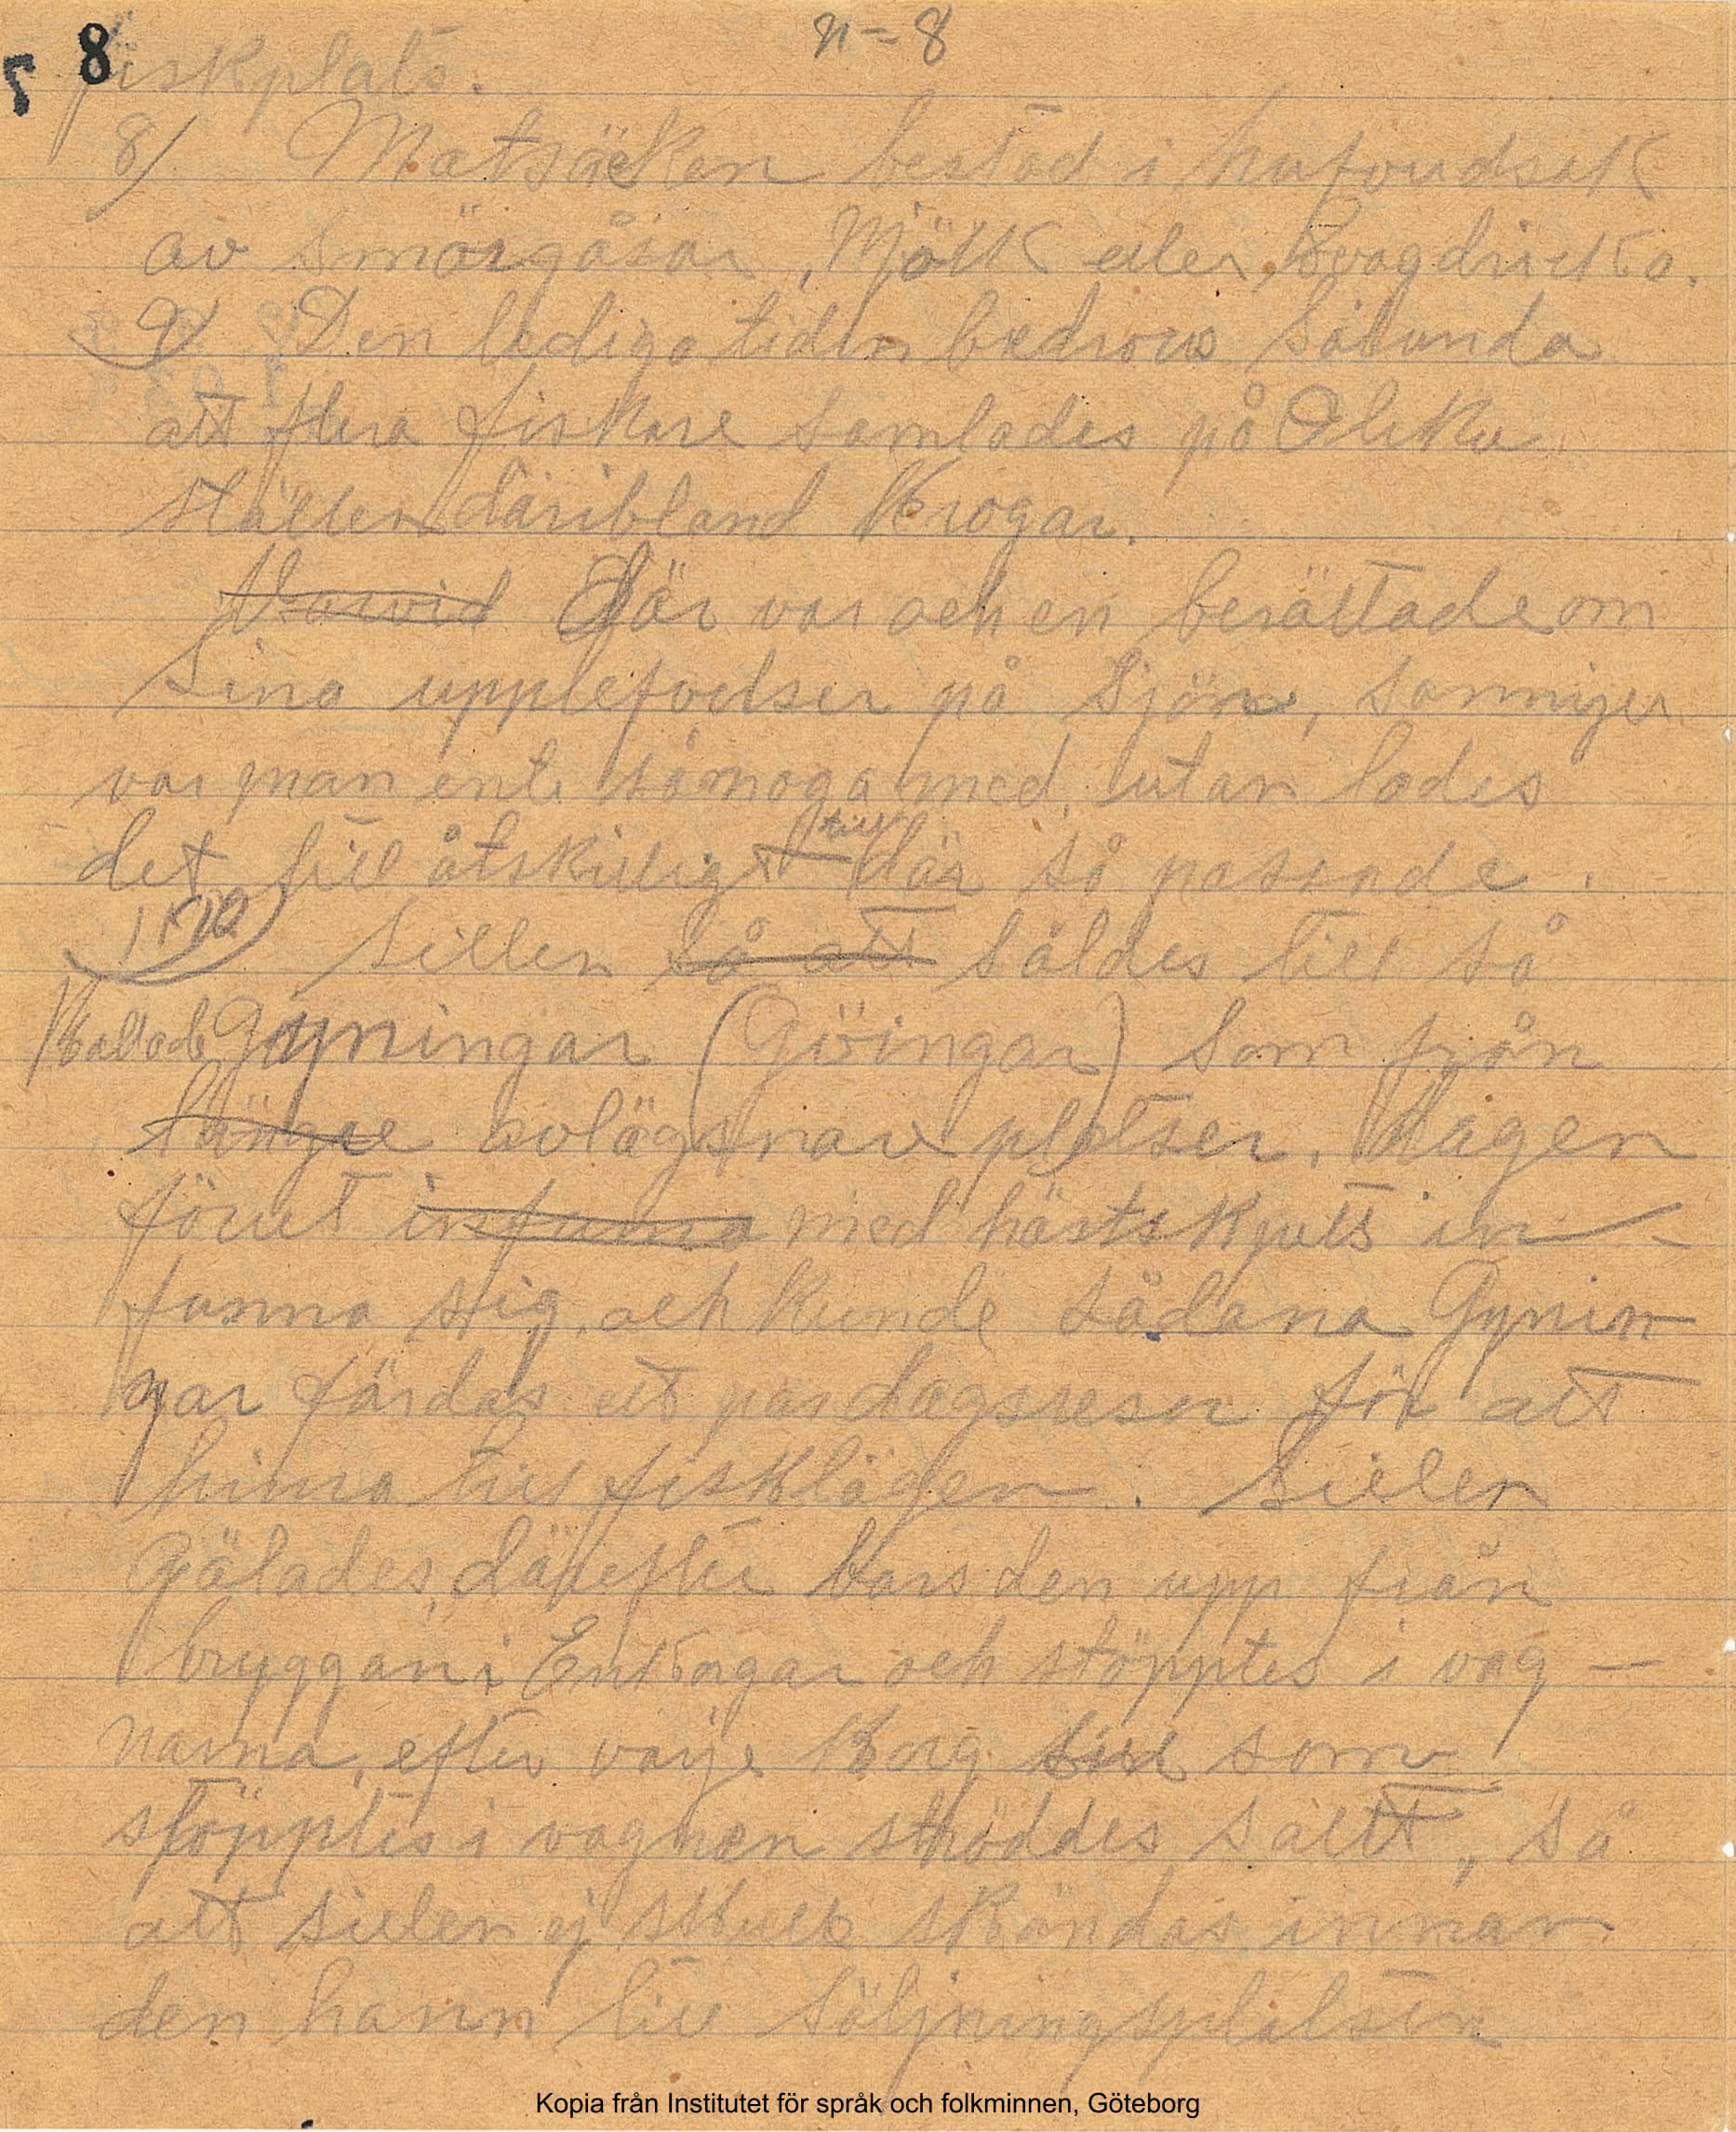 n-8
8
fiskplats.
8/ Matsäcken bestod i hufvudsak
av smörgåsar, Mjölk eller svagdricka.
9/ Den lediga tiden bedrovs sålunda
att flera fiskare samlades på Olika
ställen däribland Krogar.
Där var och en berättade om
sina upplefvelser på Sjön, sanningen
var man ente så noga med, utan lades
det till åtskilligt där så passade.
Sillen så att såldes till så
Kallade Gyningar (Göingar) som från
längre avlägsnare platser, dagen
förut infunna med hästskjuts in-
funno sig, och kunde sådana Gynin
gar färdas ett par dagsresor för att
hinna till fiskelägen. Sillen
Gälades, därefter bars den upp från
bryggan i Enkorgar och stöpptes i vag-
narna, efter varje Korg sill som
stöpptes i vagnen ströddes salt, så
att sillen ej skulle skändas innan
den hann till säljningsplatsen
Kopia från Institutet för språk och folkminnen, Göteborg